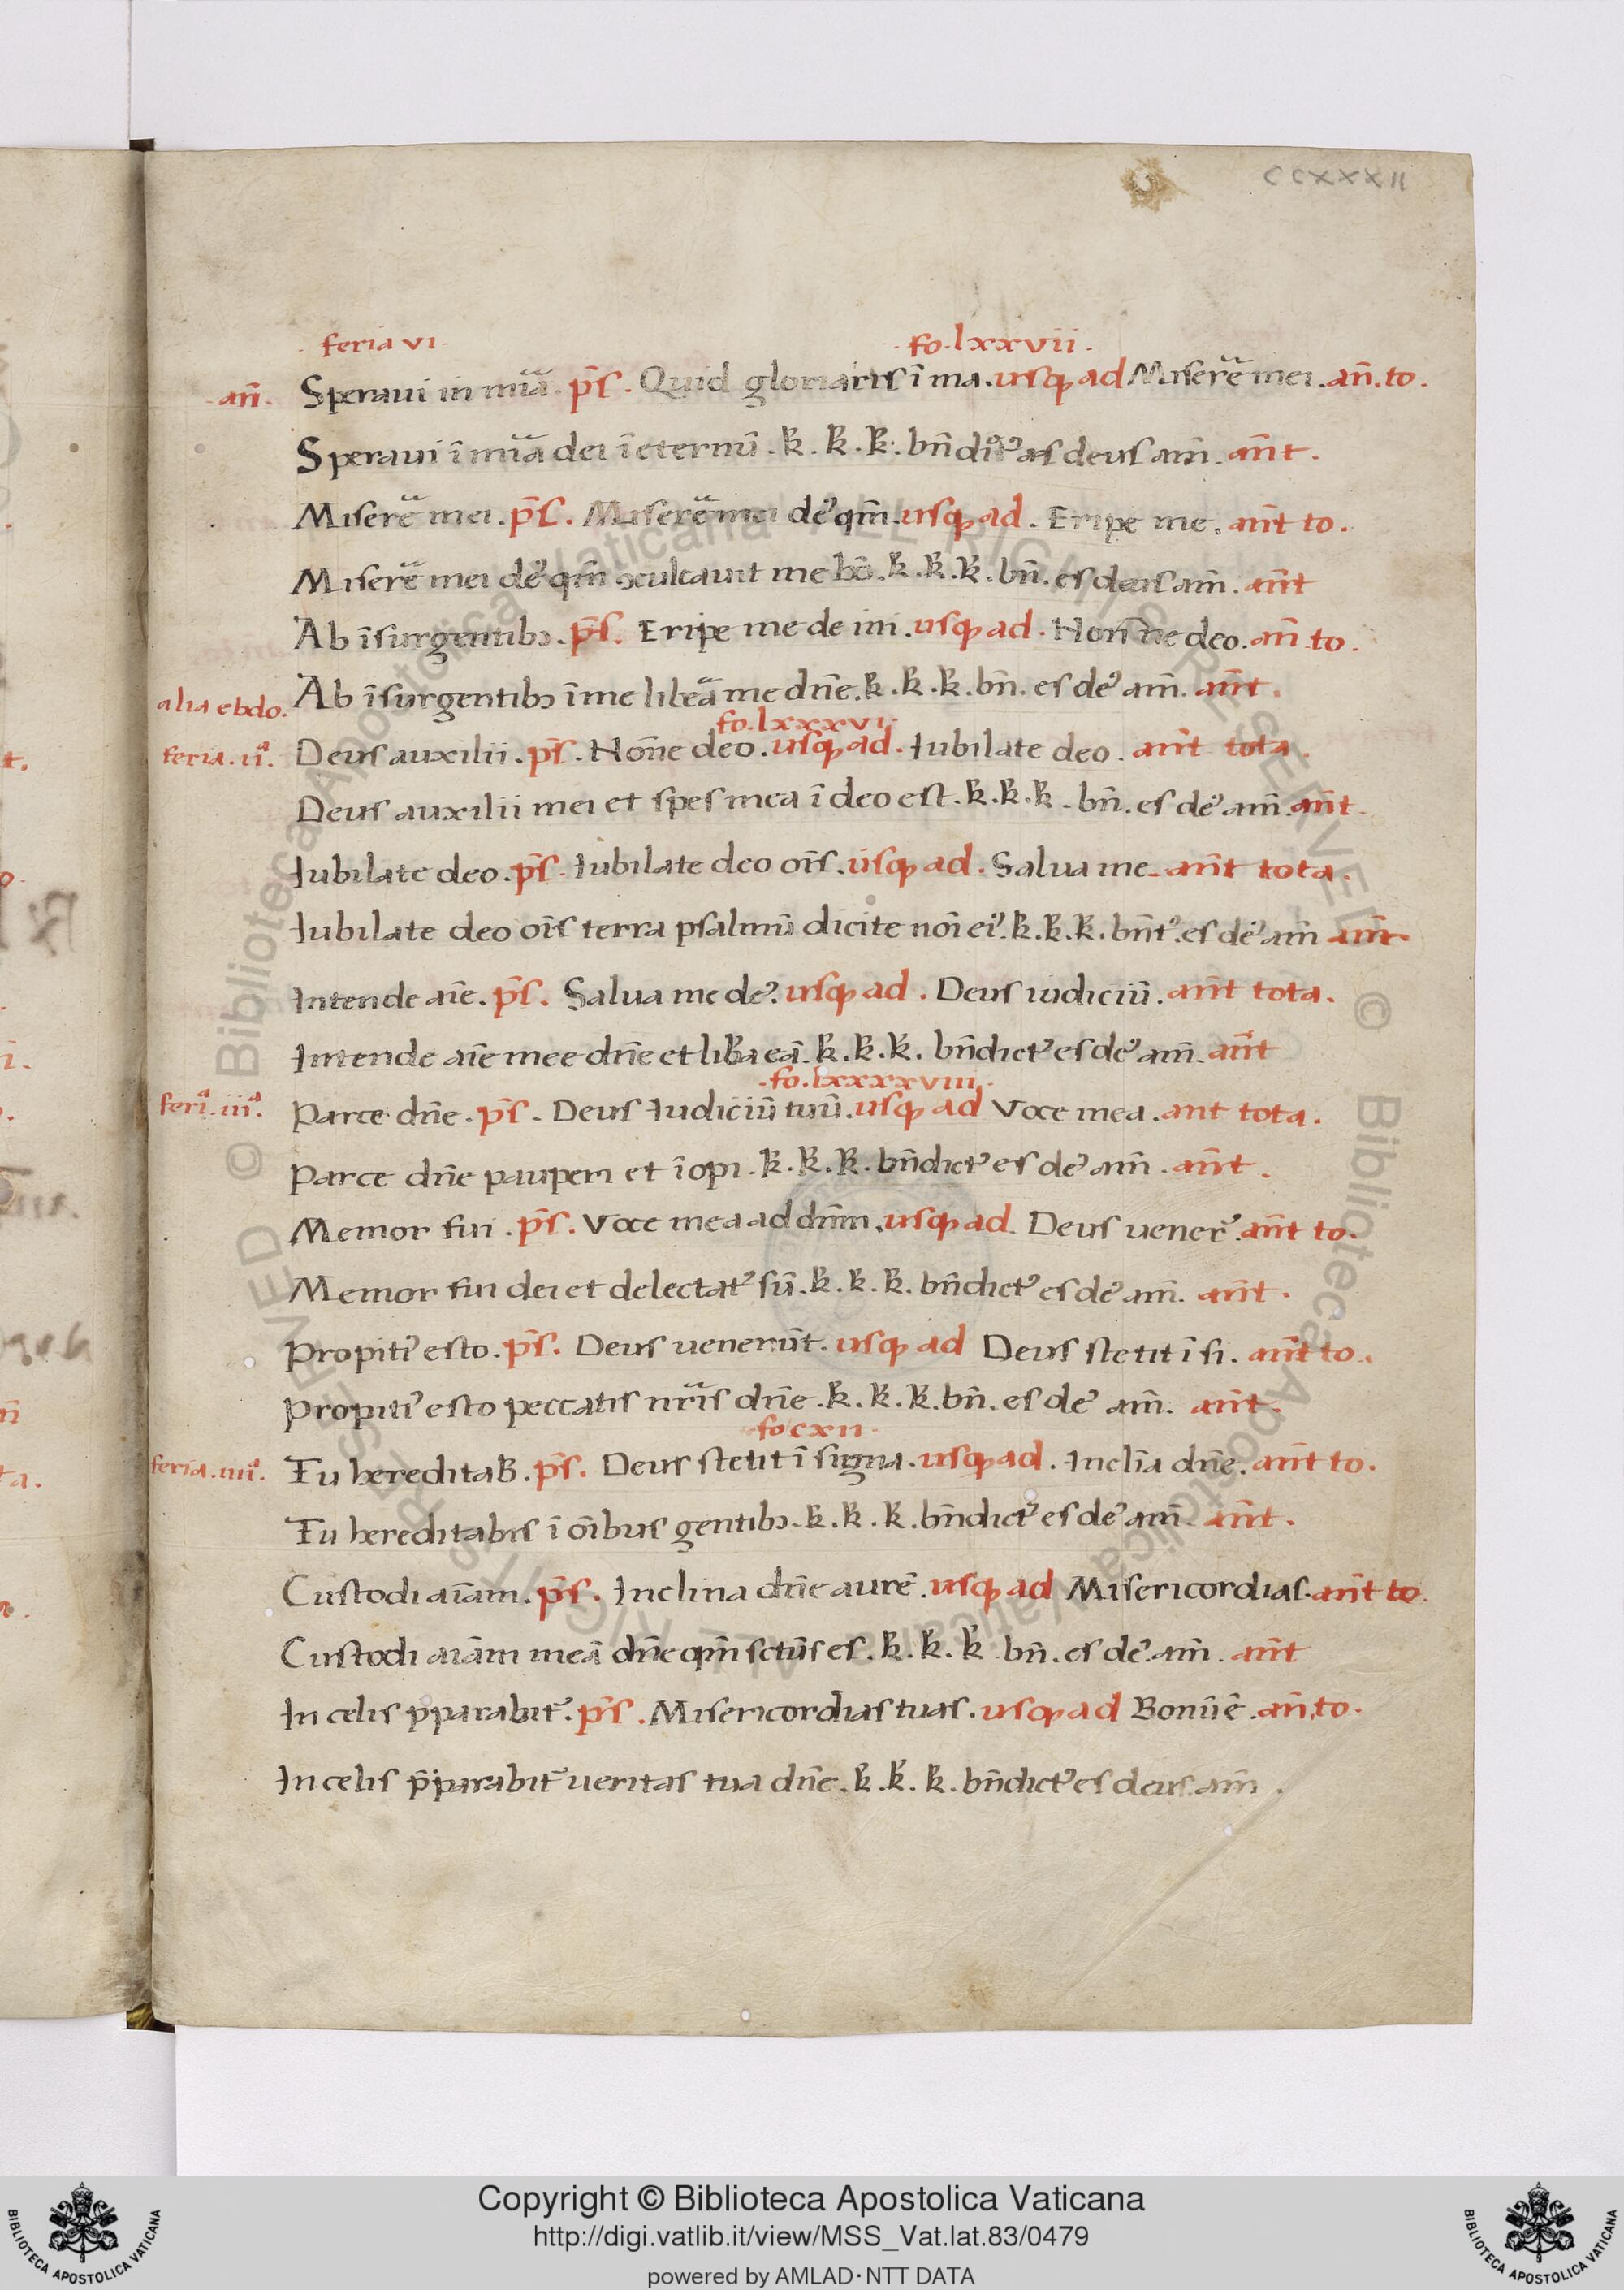 CCXXXII
feria vi. fo. lxxvii.
an̄. Speraui in mīā. p̄s. Quid gloriaris ī ma. usq; ad Miserē mei. an̄. to.
Speraui ī mīā dei ī eternū. k. k. k. bn̄dic̄t' es deus am̄. an̄t.
Miserē mei. p̄s. Miserē mei de' qm̄. usq; ad. Eripe me. an̄t to.
Miserē mei de' qm̄ ↄculcauit me hō. k. k. k. bn̄. es deus am̄. an̄t
Ab īsurgentibↄ. p̄s. Eripe me de ini. usq; ad. Non̄ne deo. an̄ to.
alia ebdo. Ab īsurgentibↄ ī me libeā me dn̄e. k. k. k. bn̄. es de' am̄. an̄t.
fo. lxxxvi.
feria. iiª. Deus auxilii. p̄s. Non̄e deo. usq; ad. Iubilate deo. an̄t tota.
Deus auxilii mei et spes mea ī deo est. k. k. k. bn̄. es de' am̄. an̄t.
Iubilate deo. p̄s. Iubilate deo oīs. usq; ad. Salua me. an̄t tota.
Iubilate deo oīs terra psalmū dicite noī ei'. k. k. k. bn̄t'. es de' am̄ an̄t
Intende aīe. p̄s. Salua me de'. usq; ad. Deus iudiciū. an̄t tota.
Intende aīe mee dn̄e et lib̄a eā. k. k. k. bn̄dict' es de' am̄. an̄t
fo. lxxxxviii.
feriª. iiiª. Parce dn̄e. p̄s. Deus Iudiciū tuū. usq; ad Voce mea. ant tota.
Parce dn̄e pauperi et īopi. k. k. k. bn̄dict' es de' am̄. an̄t.
Memor fui. p̄s. Voce mea ad dn̄m. usq; ad. Deus uener'. an̄t to.
Memor fui dei et delectat' sū. k. k. k. bn̄dict' es de' am̄. an̄t.
Propiti' esto. p̄s. Deus uenerūt. usq; ad Deus stetit ī si. an̄t to.
Propiti' esto peccatis nr̄is dn̄e. k. k. k. bn̄. es de' am̄. an̄t.
fo cxii.
feria. iiiiª. Tu hereditab̄. p̄s. Deus stetit ī signa. usq; ad. Inclīa dn̄e. an̄t to.
Tu hereditabis ī oībus gentibↄ. k. k. k. bn̄dict' es de' am̄. an̄t.
Custodi aīam. p̄s. Inclina dn̄e aurē. usq; ad Misericordias. an̄t to.
Custodi aīam meā dn̄e qm̄ sctūs es. k. k. k. bn̄. es de'. am̄. an̄t
In celis p̄parabit'. p̄s. Misericordias tuas. usq; ad Bonū ē. an̄. to.
In celis p̄parabit' ueritas tua dn̄e. k. k. k. bn̄dict' es deus. am̄.
Copyright © Biblioteca Apostolica Vaticana
http://digi.vatlib.it/view/MSS_Vat.lat.83/0479
powered by AMLAD·NTT DATA